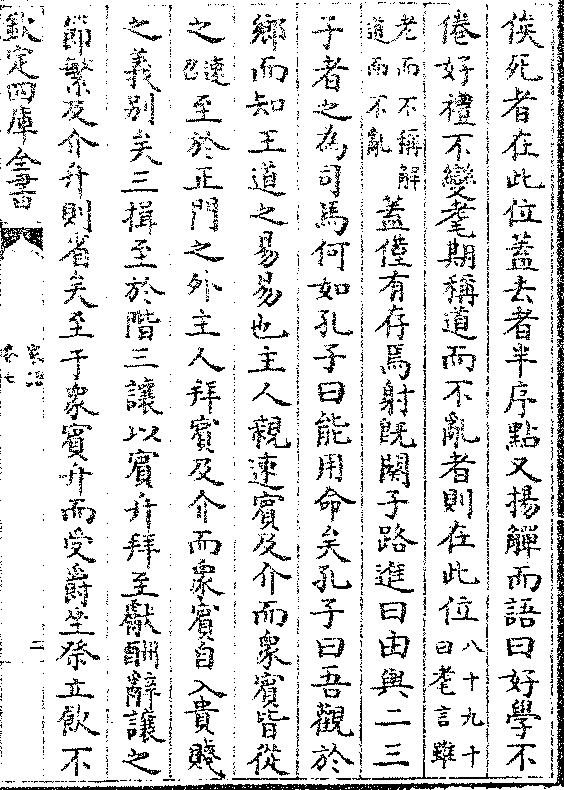 俟死者在此位蓋去者半序點又揚觶而語曰好學不
倦好禮不變耄期稱道而不亂者則在此位八十九十曰耄言雖
老而不稱解道而不亂蓋僅有存焉射既闋子路進曰由與二三
子者之為司馬何如孔子曰能用命矣孔子曰吾觀於
鄉而知王道之易易也主人親速賓及介而衆賓皆從
之速召至於正門之外主人拜賓及介而衆賓自入貴賤
之義別矣三揖至於階三讓以賓升拜至獻酬辭讓之
節繁及介升則省矣至于衆賓升而受爵坐祭立飲不
欽定四庫全書
家語
卷七
二